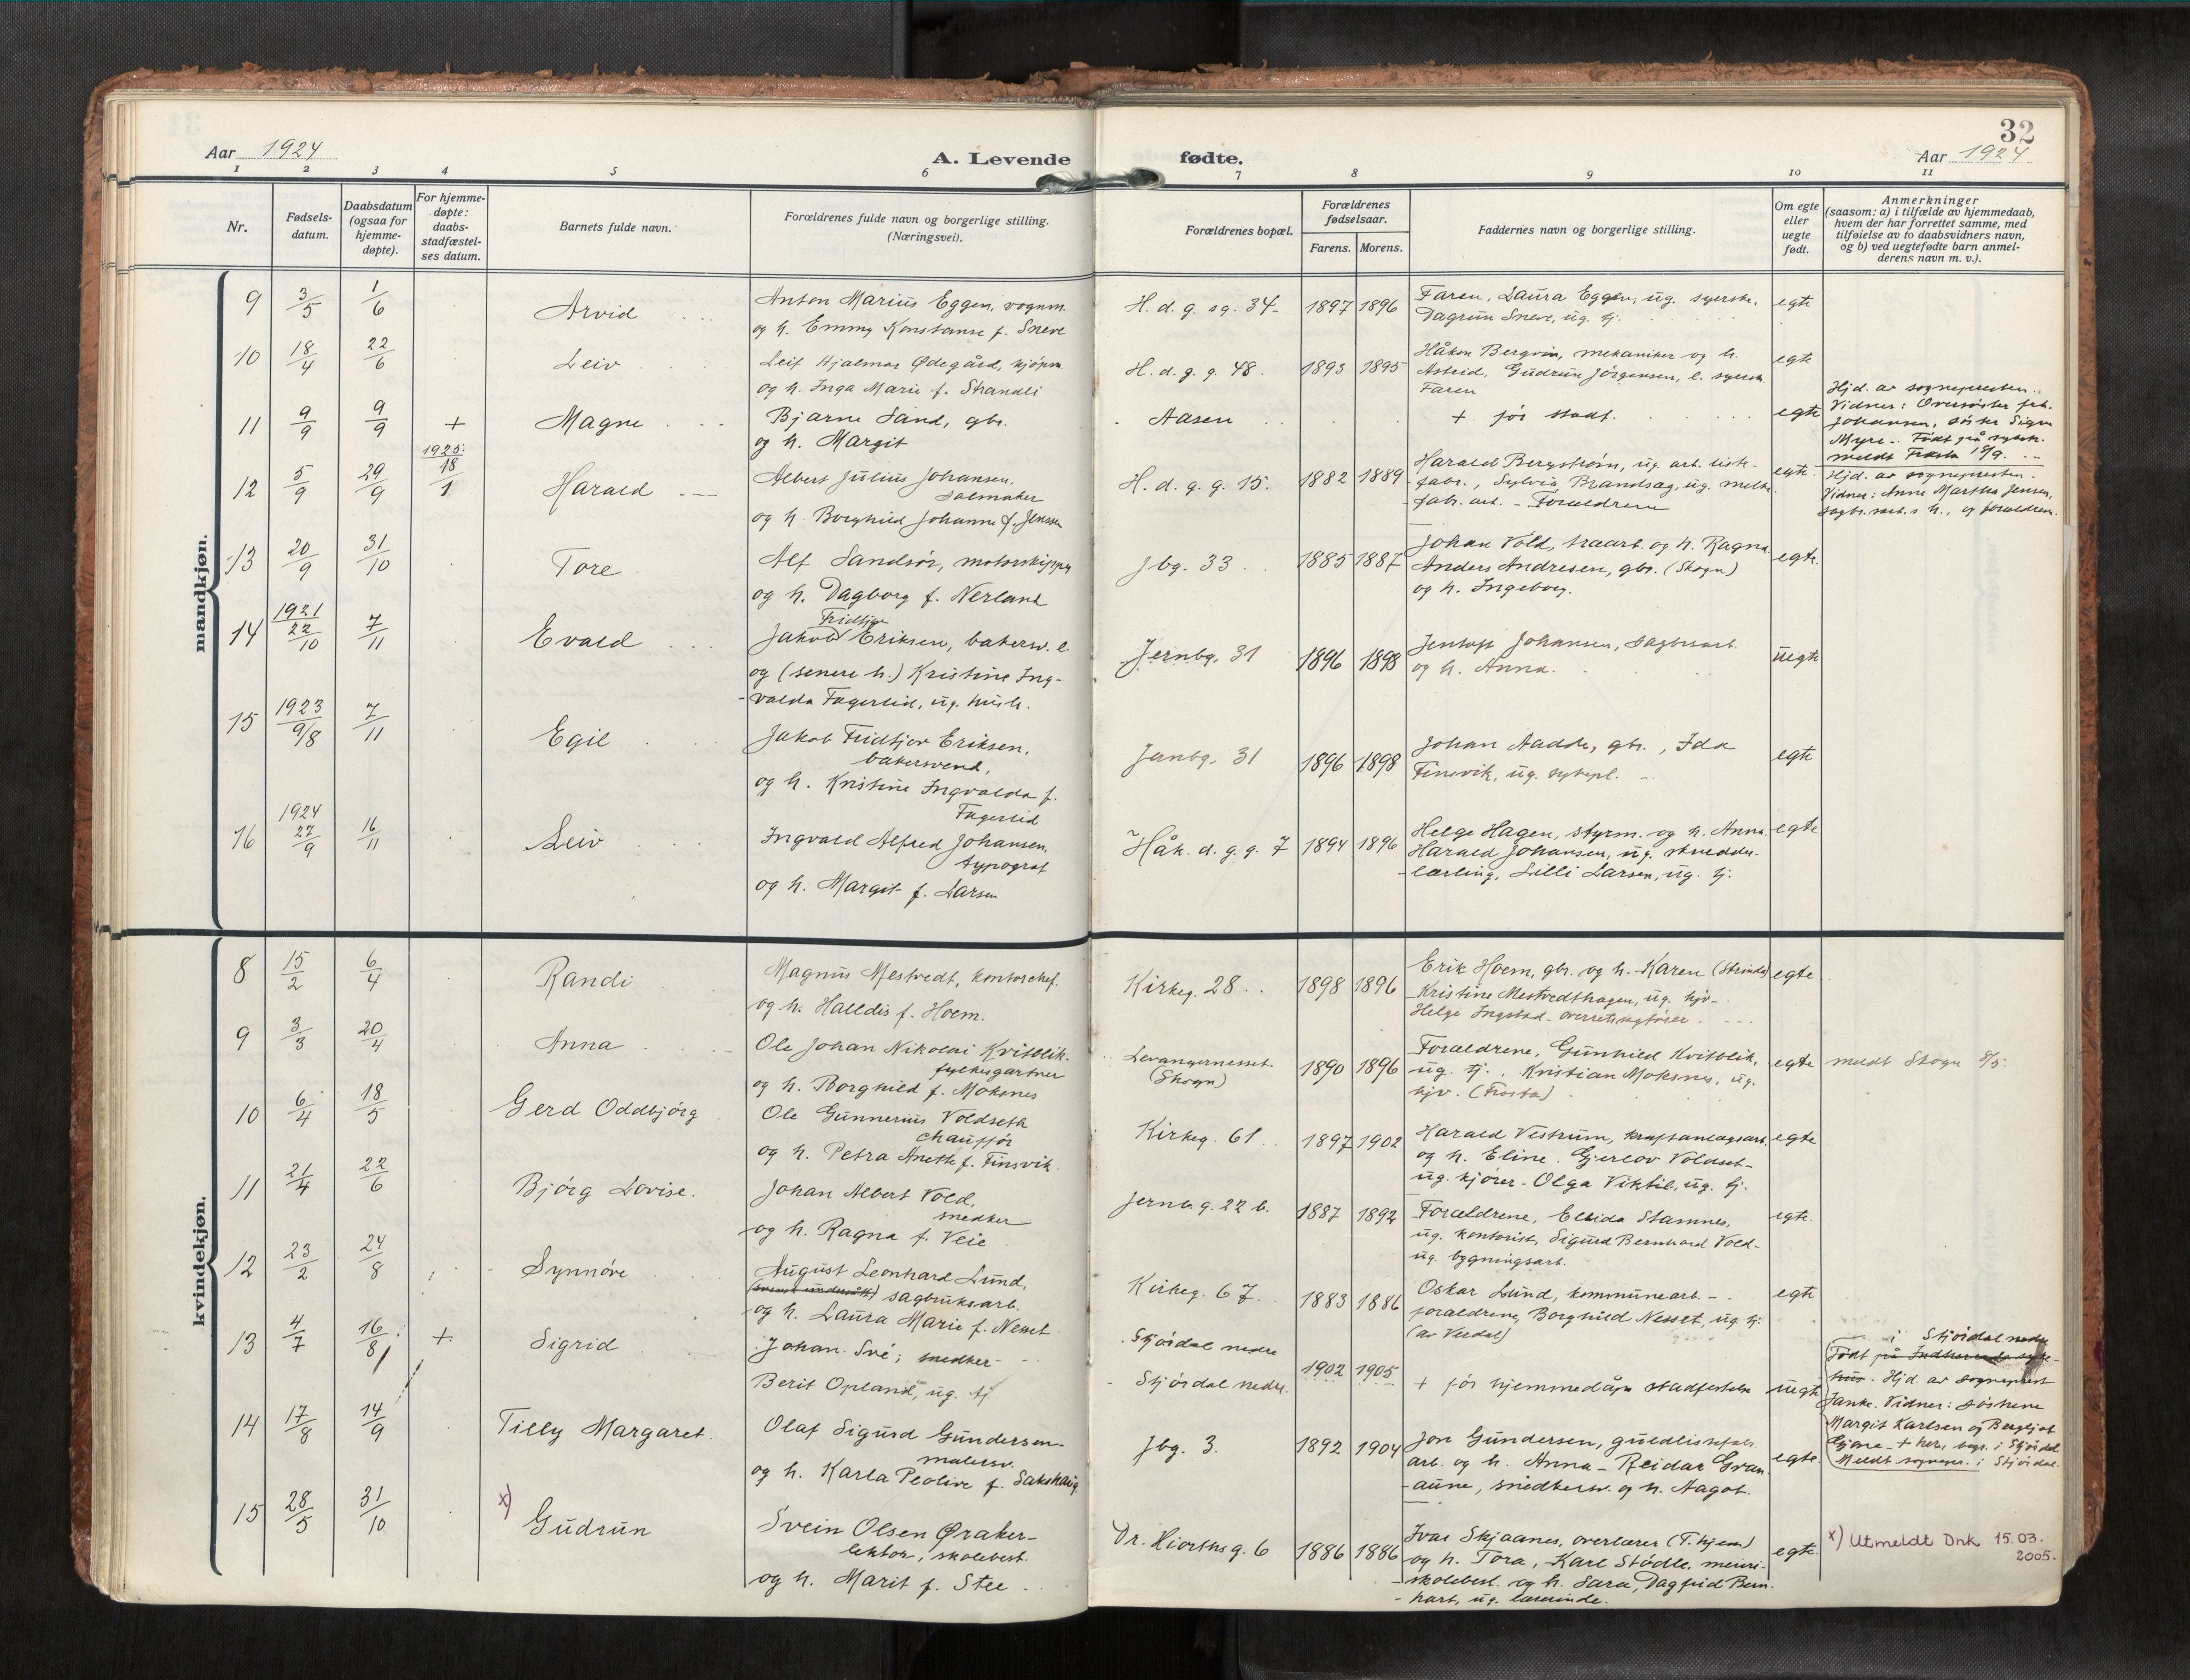 32
Aar 1924
A. Levende fødte.
Aar 1924
1 2 3 4 5 6 7 8 9 10 11
Nr.
Fødsels-
datum.
Daabsdatum
(ogsaa for
hjemme-
døpte).
For hjemme-
døpte:
daabs-
stadfæstel-
ses datum.
Barnets fulde navn.
Forældrenes fulde navn og borgerlige stilling.
(Næringsvei).
Forældrenes bopæl.
Forældrenes
fødselsaar.
Farens. Morens.
Faddernes navn og borgerlige stilling.
Om egte
eller
uegte
født.
Anmerkninger
(saasom: a) i tilfælde av hjemmedaab,
hvem der har forrettet samme, med
tilføielse av to daabsvidners navn,
og b) ved uegtefødte barn anmel-
derens navn m. v.).
mandkjøn.
9 3/5 1/6 Arvid
Anton Marius Eggen, vognm.
og h. Emmy Konstanse f. Sneve
H. d. g. sg. 34 1897 1896
Faren, Laura Eggen, ug. syerske,
Dagrun Sneve, ug. hj.
egte
10 18/4 22/6 Leiv
Leif Hjalmar Ødegård, kjøpm.
og h. Inga Marie f. Strandli
H. d. g. g. 48. 1893 1895
Håkon Bergvin, mekaniker og h.
Astrid, Gudrun Jörgensen, e. syersk.
Faren
egte
11 9/9 9/9 + Magne
Bjarne Sand, gbr.
og h. Margit
Aasen
+ för stadf.
egte
Hjd. av sognepresten.
Vidner: Oversöster frk.
Johansen, söster Signe
Myre. Født på sykeh.
meldt Frosta 19/9.
12 5/9 29/9 1925: 18/1 Harald
Albert Julius Johansen,
salmaker
og h. Borghild Johanne f. Jenssen
H. d. g. g. 15. 1882 1889
Harald Bergström, ug. arb. liste-
fabr., Sylvia Brandsæg, ug. melke
fab. arb. - Forældrene
egte
Hjd. av sognepresten.
Vidner: Anne Martha Jensen,
sagbr.arb.s h., og forældrene.
13 20/9 31/10 Tore
Alf Sandsör, motorskipper
og h. Dagborg f. Nerland
Jbg. 33 1885 1887
Johan Vold, traarb. og h. Ragna
Anders Andresen, gbr. (Skogn)
og h. Ingeborg.
egte.
14 1921 22/10 7/11 Evald
Fridtjov
Jakob Eriksen, bakersv. e.
og (senere h.) Kristine Ing-
valda Fagerlid, ug. hush.
Jernbg. 31 1896 1898
Jentoft Johansen, sagbrsarb.
og h. Anna.
uegte
15 1923 9/8 7/11 Egil
Jakob Fridtjov Eriksen,
bakersvend,
og h. Kristine Ingvalda f.
Fagerlid
Jernbg. 31 1896 1898
Johan Aadde, gbr., Ida
Finsvik, ug. sykepl.
egte
16 1924 27/9 16/11 Leiv
Ingvald Alfred Johansen,
typograf
og h. Margit f. Larsen
Håk. d. g. g. 7 1894 1896
Helge Hagen, styrm. og h. Anna.
Harald Johansen, ug. skredder-
lærling, Lilli Larsen, ug. hj.
egte
kvindekjøn.
8 15/2 6/4 Randi
Magnus Mestvedt, kontorchef.
og h. Halldis f. Hoem.
Kirkeg. 28 1898 1896
Erik Hoem, gbr. og h. Karen (Strinda)
Kristine Mestvedthagen, ug. hjv.
Helge Ingstad - overretssagfører
egte
9 3/3 20/4 Anna
Ole Johan Nikolai Kvitvik.
fylkesgartner
og h. Borghild f. Moksnes
Levangernesset
(Skogn)
1890 1896
Forældrene, Gunhild Kvitvik,
ug. hj., Kristian Moksnes, ug.
hjv. (Frosta)
egte
meldt Skogn 8/5.
10 6/4 18/5 Gerd Oddbjörg
Ole Gunnerius Voldseth
chauffør
og h. Petra Anette f. Finsvik.
Kirkeg. 61 1897 1902
Harald Vestrum, kraftanlægsarb.
og h. Eline. Gjerlov Voldset-
ug. kjörer - Olga Viktil, ug. hj.
egte
11 21/4 22/6 Björg Lovise.
Johan Albert Vold,
snedker
og h. Ragna f. Veie
Jernb. g. 22 b. 1887 1892
Forældrene, Ellida Stamnes,
ug. kontorist, Sigurd Bernhard Vold-
ug. bygningsarb.
egte.
12 23/2 24/8 Synnöve
August Leonhard Lund,
sagbruksarb.
og h. Laura Marie f. Nesset
Kirkeg. 67. 1883 1886
Oskar Lund, kommunearb. -
forældrene, Borghild Nesset, ug. hj.
(av Verdal)
egte
13 4/7 16/8 + Sigrid
Johan Sve; snedker
Berit Opland, ug. hj
Stjördal nedre
Stjördal nedre.
1902 1905
+ för hjemmedåpn stadfestelse
uegte
i Stjördal nedre
Født på Indherreds syke-
hus. Hjd. av sogneprest
Janke. Vidner: söstrene
Margit Karlsen og Bergljot
+ her, begr. i Stjördal
Meldt sognepr. i Stjördal.
14 17/8 14/9 Tilly Margaret.
Olaf Sigurd Gundersen
malersv.
og h. Karla Peolive f. Sakshaug
Jbg. 3. 1892 1904
Jon Gundersen, guldlistefabr.
arb. og h. Anna - Reidar Gran-
aune, snedkersv. og h. Aagot.
egte.
15 28/5 31/10 x) Gudrun
Svein Olsen Øraker-
lektor, skolebest.
og h. Marit f. Stee
Dr. Hiorths g. 6 1886 1886
Ivar Skjaanes, overlærer (T.hjem)
og h. Tora, Karl Stödle, meieri-
skolebest. og h. Sara, Dagfrid Bern-
hart, ug. lærerinde.
egte.
x) Utmeldt Dnk 15.03.
2005.